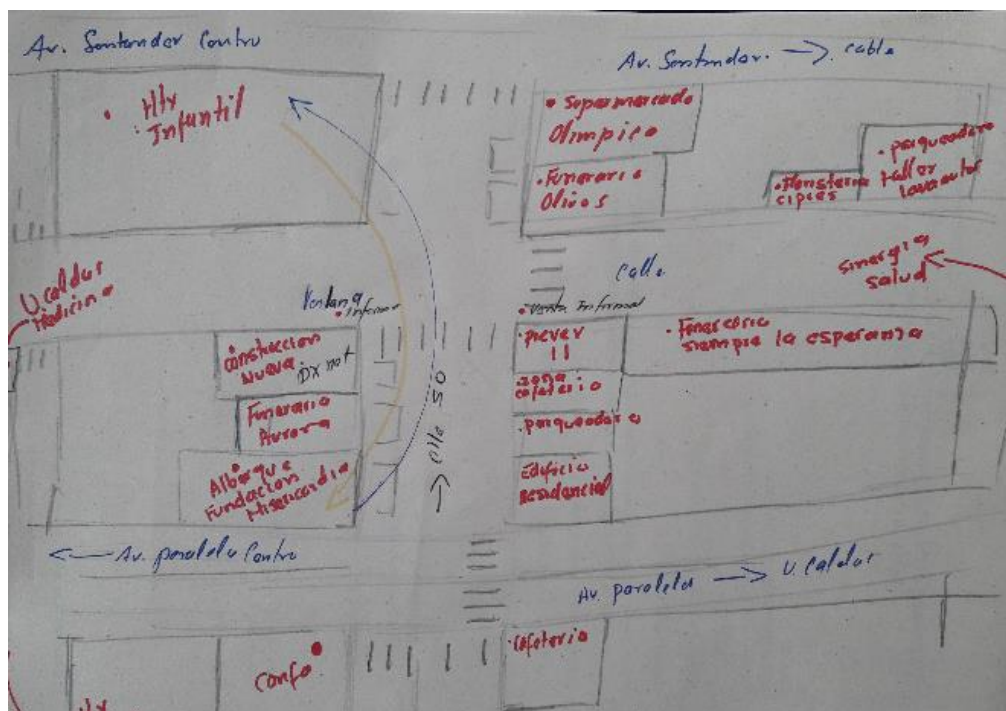 Av. Santander Centro
Av. Santander. → cable
Htx
Infantil
Supermercado
Olimpica
Funeraria
Olivos
Floristeria
cipres
parqueadero
taller
lavautos
U. caldas
Medicina
Ventana
informa
Calle
sinergia
salud
Venta Informal
construccion
Nueva
DX mot
Funeraria
Aurora
Albergue
Fundacion
Misericordia
→ Clle 50
prever
11
zona
cafeteria
parqueadero
Edificio
Residencial
Funeraria
siempre la esperanza
← Av. paralela Centro
Av. paralela → U. Caldas
Confa
Cafeteria